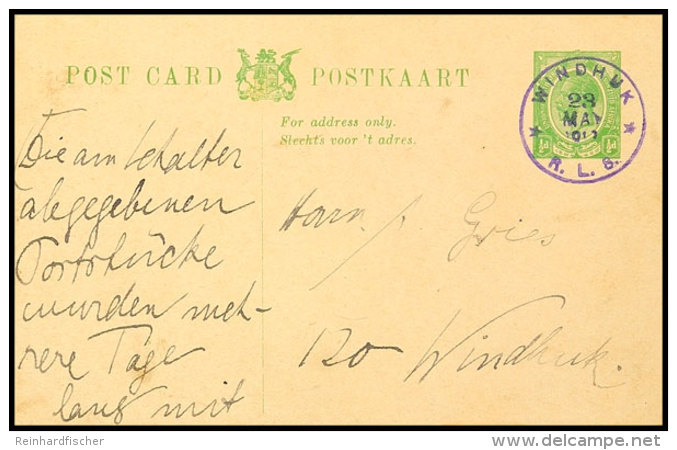 POST CARD POSTKAART
For address only.
Slechts voor 't adres.
WINDHUK
23
MAI
R. L. S.
½d ½d
Die am Schalter
abgegebenen
Poststücke
wurden meh-
rere Tage
lang mit
Herrn Gries
120 Windhuk.
Reinhardfischer
delcampe.net